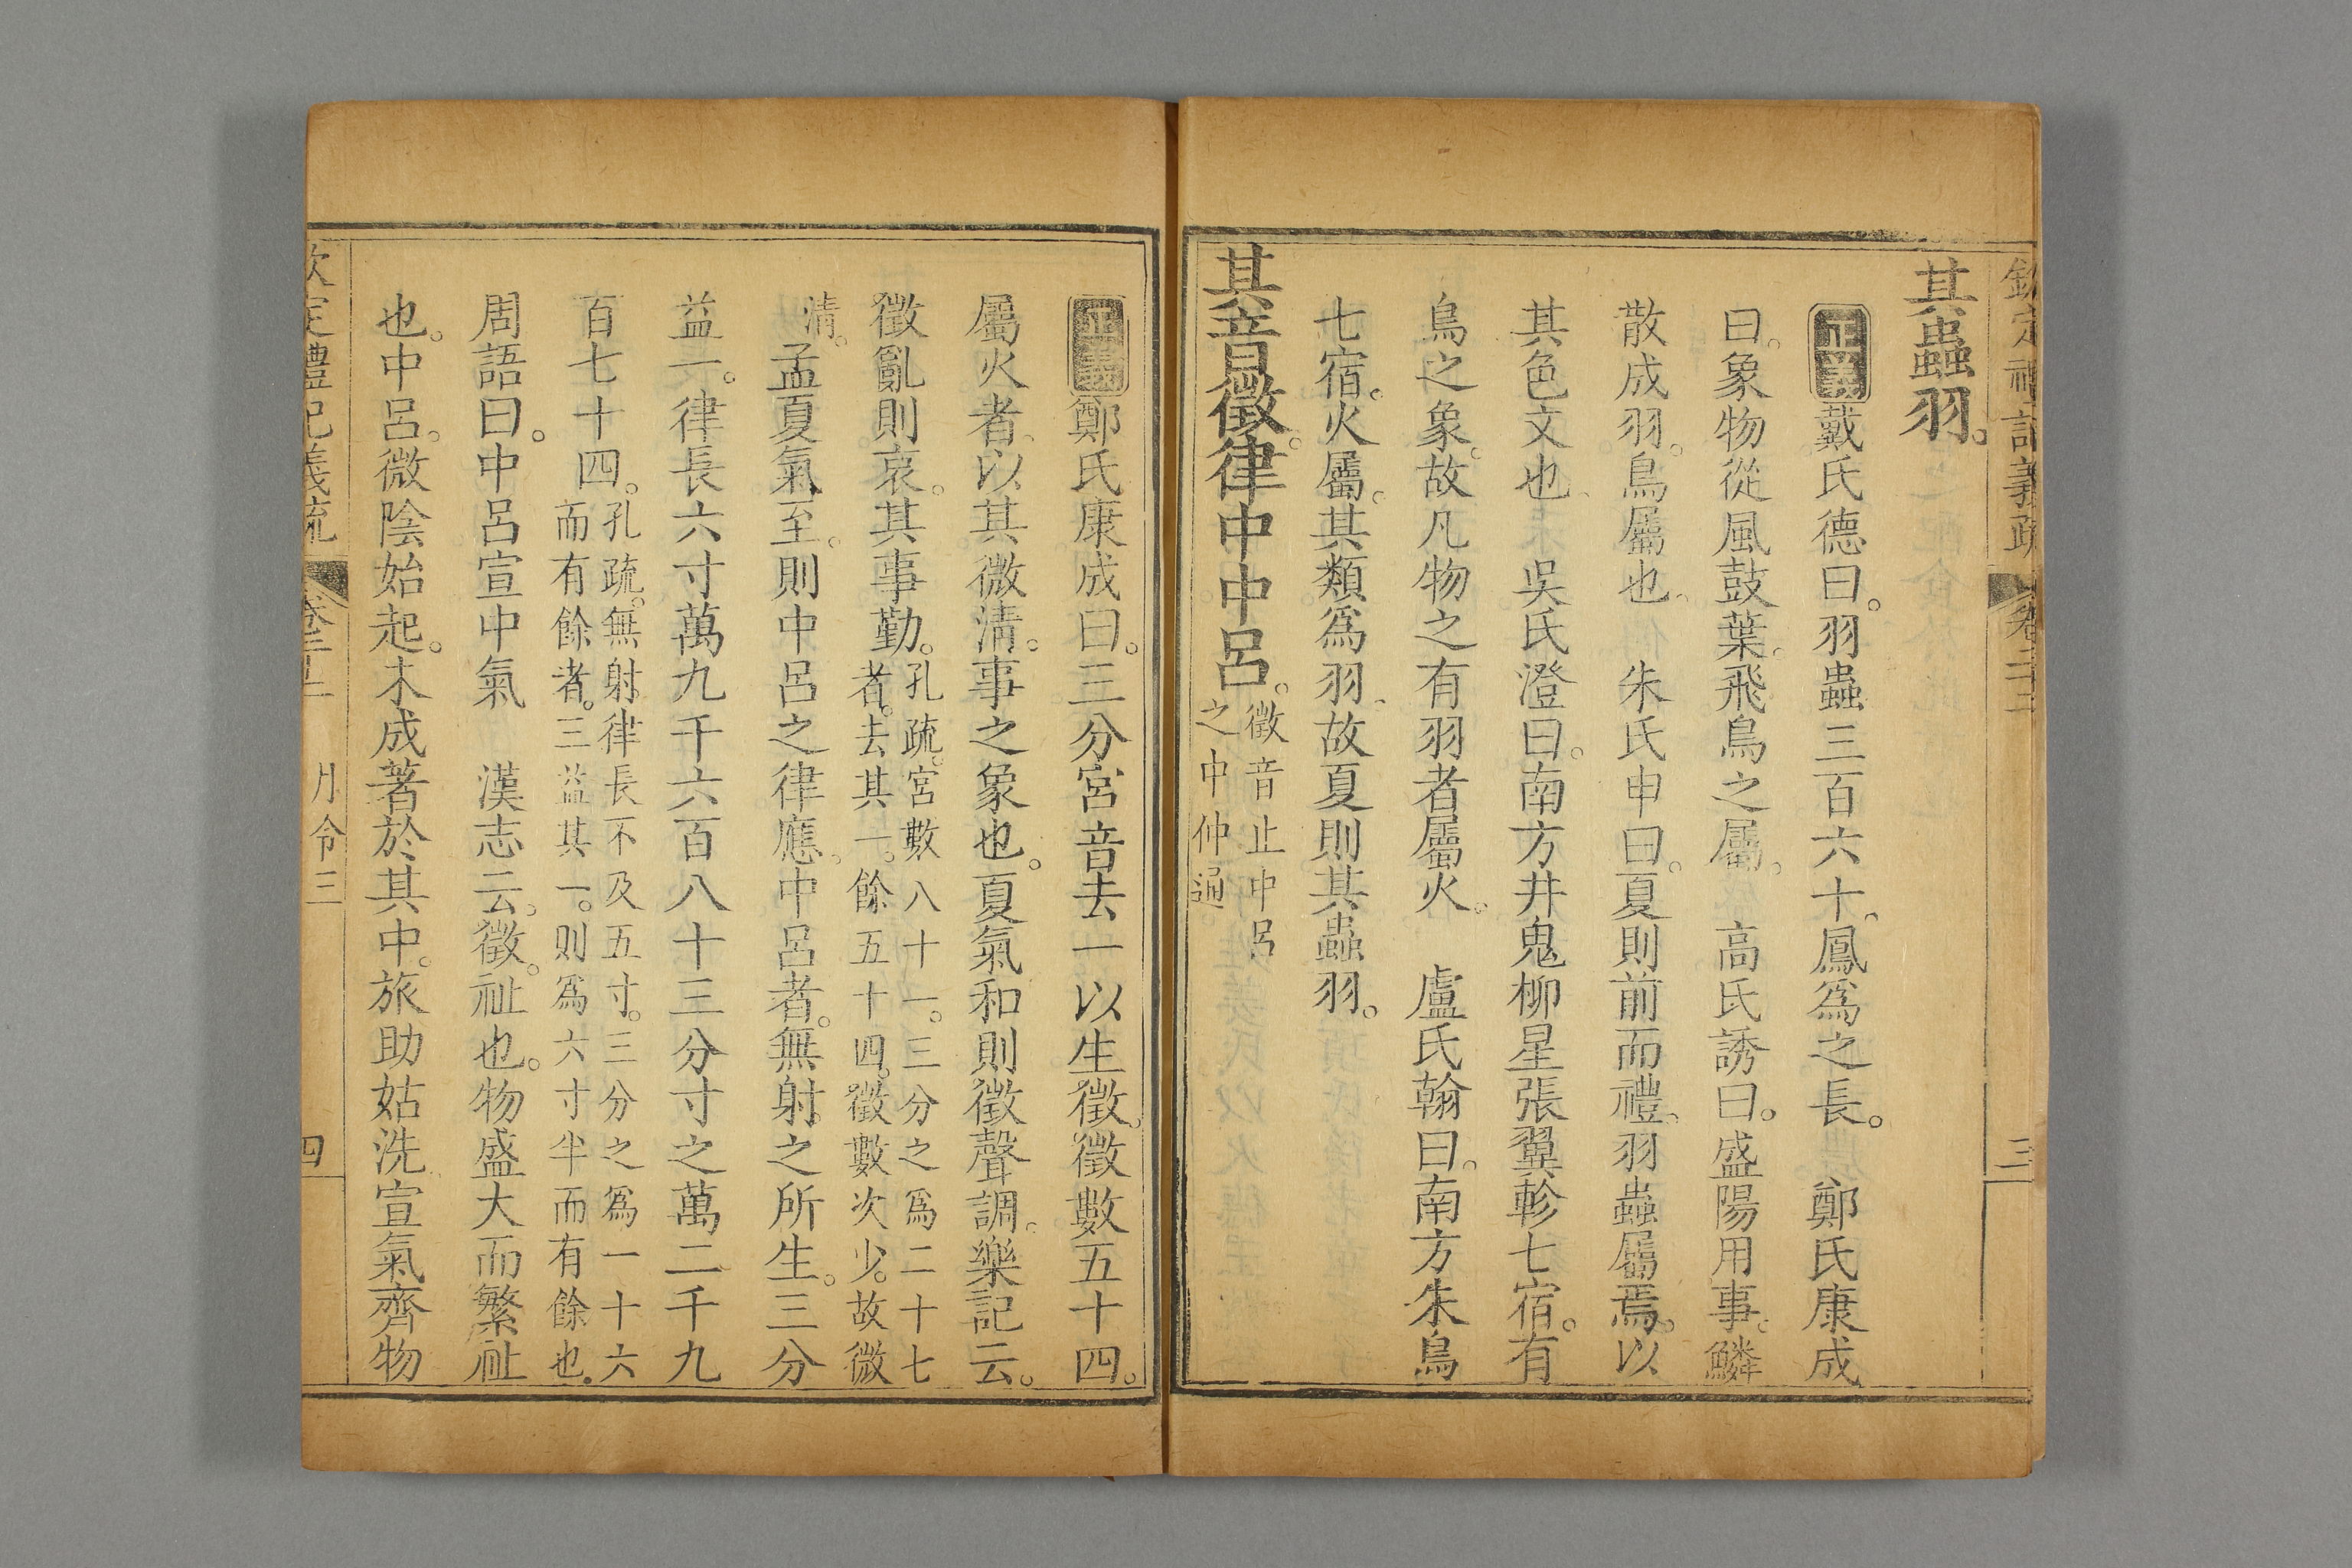 欽定禮記義疏 卷二十三 三
其蟲羽。
正義戴氏德曰。羽蟲三百六十。鳳為之長。 鄭氏康成
曰。象物從風鼓葉。飛鳥之屬。 高氏誘曰。盛陽用事。鱗
散成羽。鳥屬也。 朱氏申曰。夏則前而禮。羽蟲屬焉。以
其色文也。 吳氏澄曰。南方井鬼柳星張翼軫七宿。有
鳥之象。故凡物之有羽者屬火。 盧氏翰曰。南方朱鳥
七宿。火屬。其類為羽。故夏則其蟲羽。
其音徵律中中呂。徵音止中呂
之中仲通
正義鄭氏康成曰。三分宮音去一以生徵。徵數五十四。
屬火者。以其微清。事之象也。夏氣和則徵聲調。樂記云。
徵亂則哀。其事勤。孔疏。宮數八十一。三分之為二十七
者。去其一。餘五十四。徵數次少。故微
清。孟夏氣至。則中呂之律應。中呂者。無射之所生。三分
益一。律長六寸萬九千六百八十三分寸之萬二千九
百七十四。孔疏。無射律長不及五寸。三分之為一十六
而有餘者。三益其一。則為六寸半而有餘也。
周語曰。中呂宣中氣 漢志云。徵。祉也。物盛大而繁祉
也。中呂。微陰始起。未成著於其中。旅助姑洗宣氣齊物
欽定禮記義疏 卷二十三 月令三 四